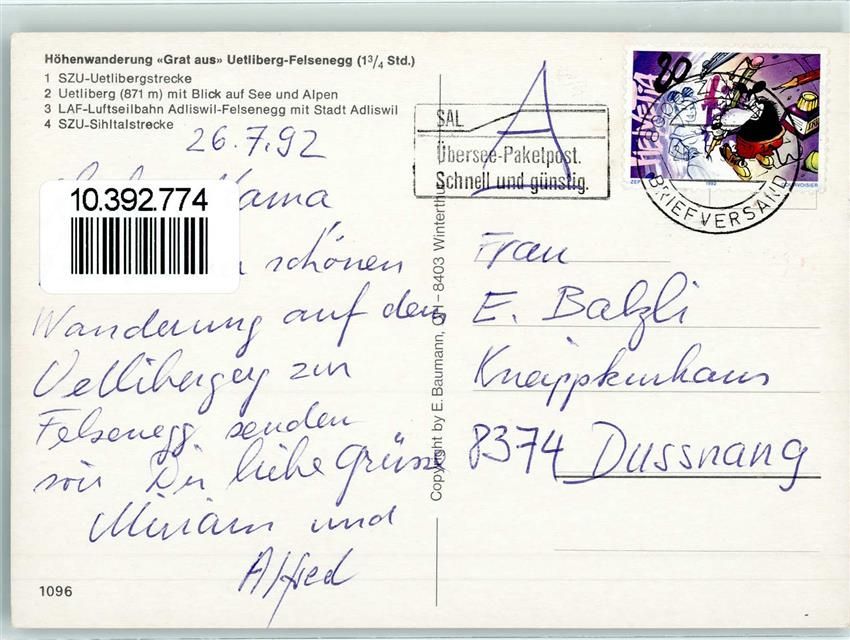 Höhenwanderung «Grat aus» Uetliberg-Felsenegg (1¾ Std.)
1 SZU-Uetlibergstrecke
2 Uetliberg (871 m) mit Blick auf See und Alpen
3 LAF-Luftseilbahn Adliswil-Felsenegg mit Stadt Adliswil
4 SZU-Sihltalstrecke
26.7.92
Mama
10.392.774
schönen
Wanderung auf dem
zur
Felsenegg senden
wir Dir liebe Grüsse
Miriam und
Alfred
1096
Copyright by E. Baumann, CH-8403 Winterthur
A
SAL
Übersee-Paketpost.
Schnell und günstig.
80
Helvetia
1992
BRIEFVERSAND
Frau
E. Balzli
Kneippkurhaus
8374 Dussnang